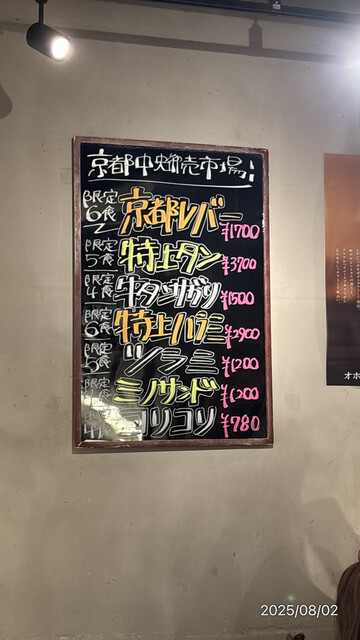 京都中央卸売市場!
限定6食 京都レバー ¥1700
限定5食 特上タン ¥3700
限定4食 牛タンサガリ ¥1500
限定6食 特上ハラミ ¥2900
限定5食 ツラミ ¥1200
限定 ミノサンド ¥1200
限定4食 コリコリ ¥780
オホ
2025/08/02